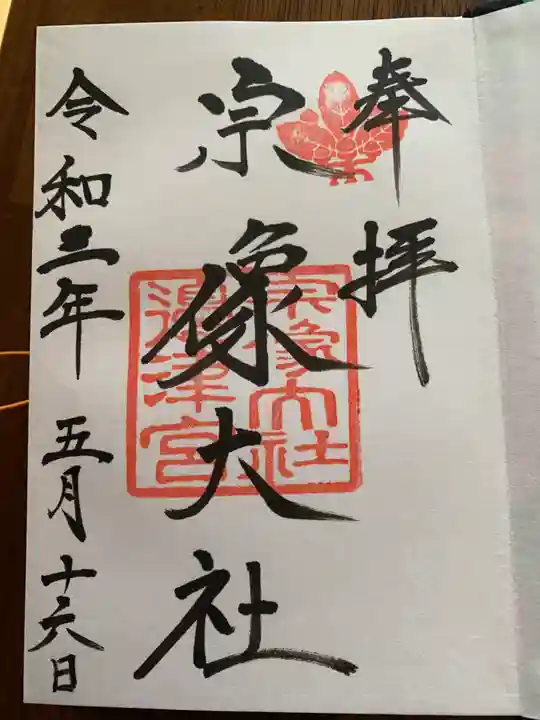 奉拝
宗像大社
宗像大社
邊津宮
令和二年 五月十六日